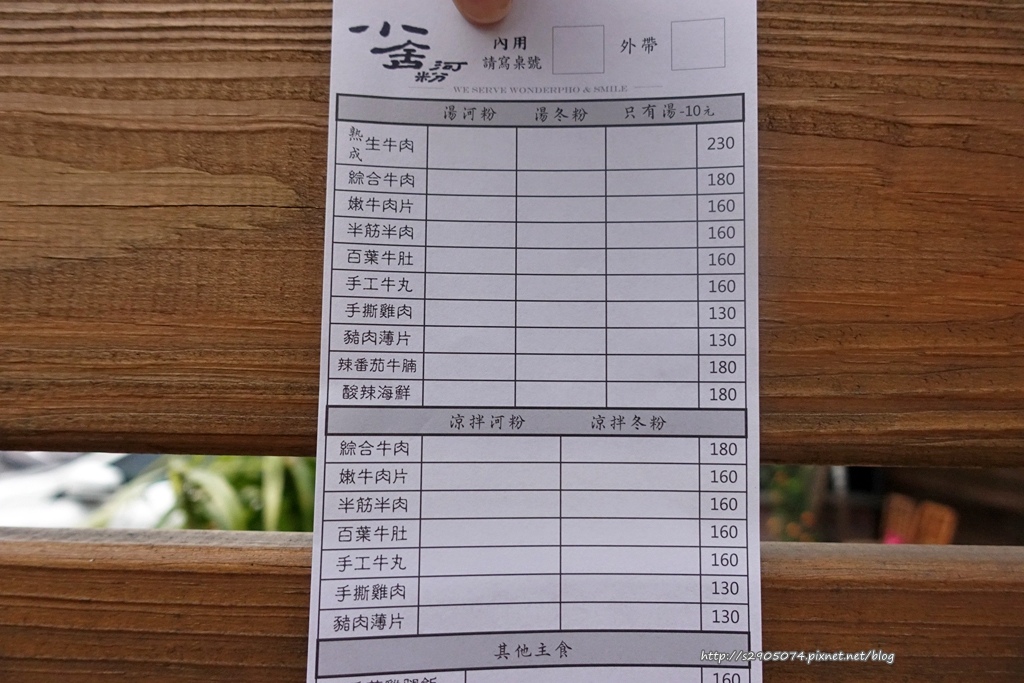 小金河粉
內用 請寫桌號 外帶
WE SERVE WONDERPHO & SMILE
湯河粉 湯冬粉 只有湯-10元
熟成生牛肉 230
綜合牛肉 180
嫩牛肉片 160
半筋半肉 160
百葉牛肚 160
手工牛丸 160
手撕雞肉 130
豬肉薄片 130
辣番茄牛腩 180
酸辣海鮮 180
涼拌河粉 涼拌冬粉
綜合牛肉 180
嫩牛肉片 160
半筋半肉 160
百葉牛肚 160
手工牛丸 160
手撕雞肉 130
豬肉薄片 130
其他主食
160
http://s2905074.pixnet.net/blog